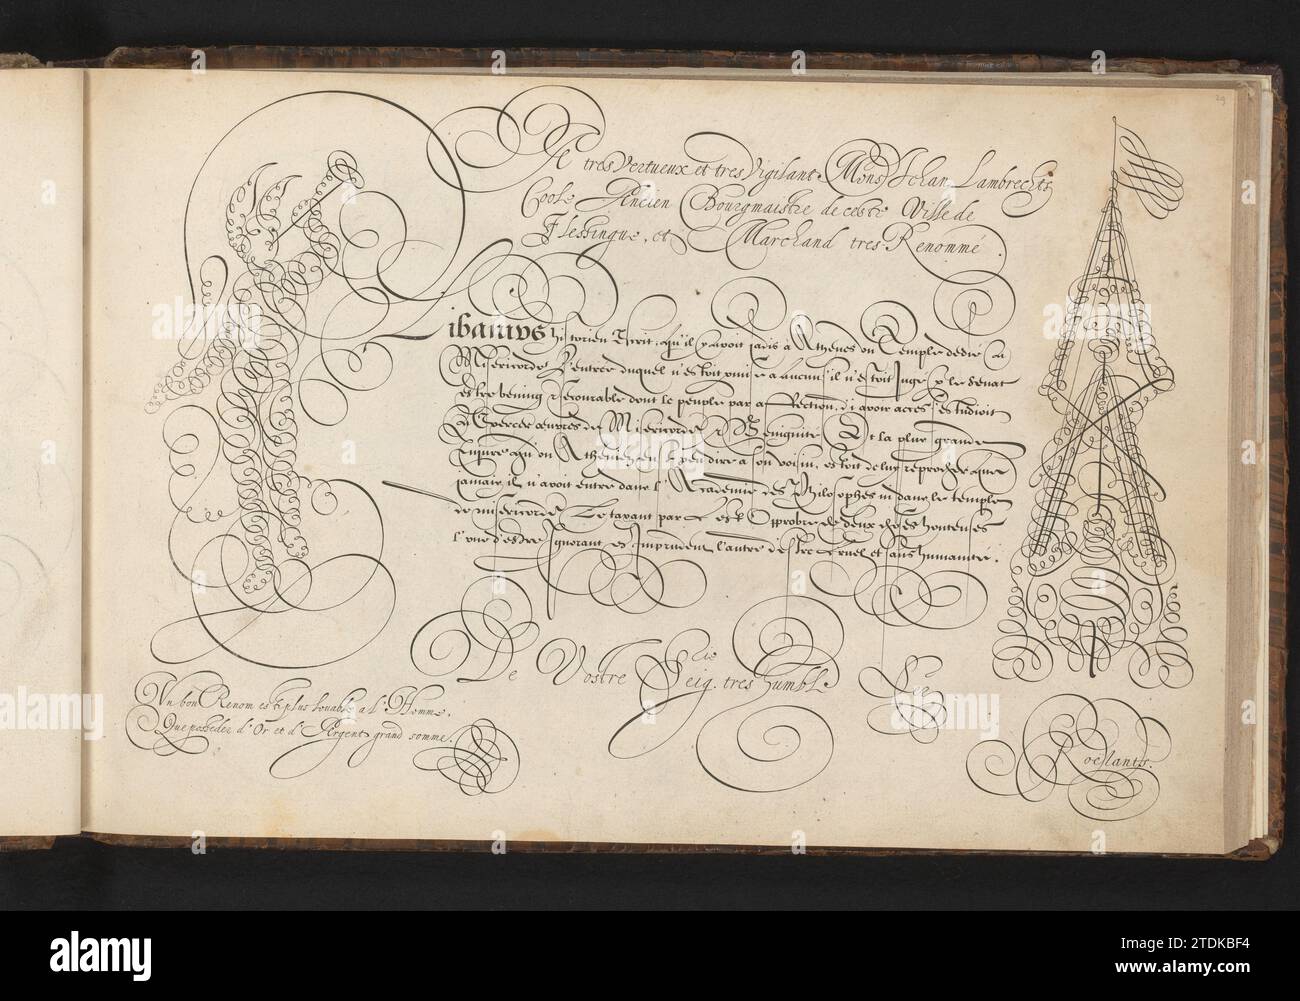 29
A tres Vertueux et tres Vigilant Mons.r Jehan Lambrechts
Coole Ancien Bourgmaistre de ceste Ville de
Flessingue, et Marchand tres Renommé.
Libanius historien Escrit, qu'il y avoit jadis a Athenes un Temple dedié a
Misericorde L'entrée duquel n'estoit permise a aucuns, s'il n'estoit Jugé p le Senat
estre bening & secourable dont le peuple par affection, d'y avoir acces s'estudioit
a Exercer œuvres de Misericorde & Benignité. Et la plus grande
Injure qu'un Athenien eut peu dire a son voisin, estoit de luy reprocher que
jamais il n'avoit entré dans l'Academie des Philosophes ni dans le temple
de misericorde. Le taxant par cest Opprobre de deux choses honteuses
l'une d'estre Ignorant et Imprudent l'autre d'estre Cruel et sans humanité.
De Vostre Seig.rie tres humbl.e
Un bon Renom est plus louable a l'Homme,
Que posseder d'Or et d'Argent grand somme.
Roelants.
alamy
Image ID: 2TDKBF4
www.alamy.com